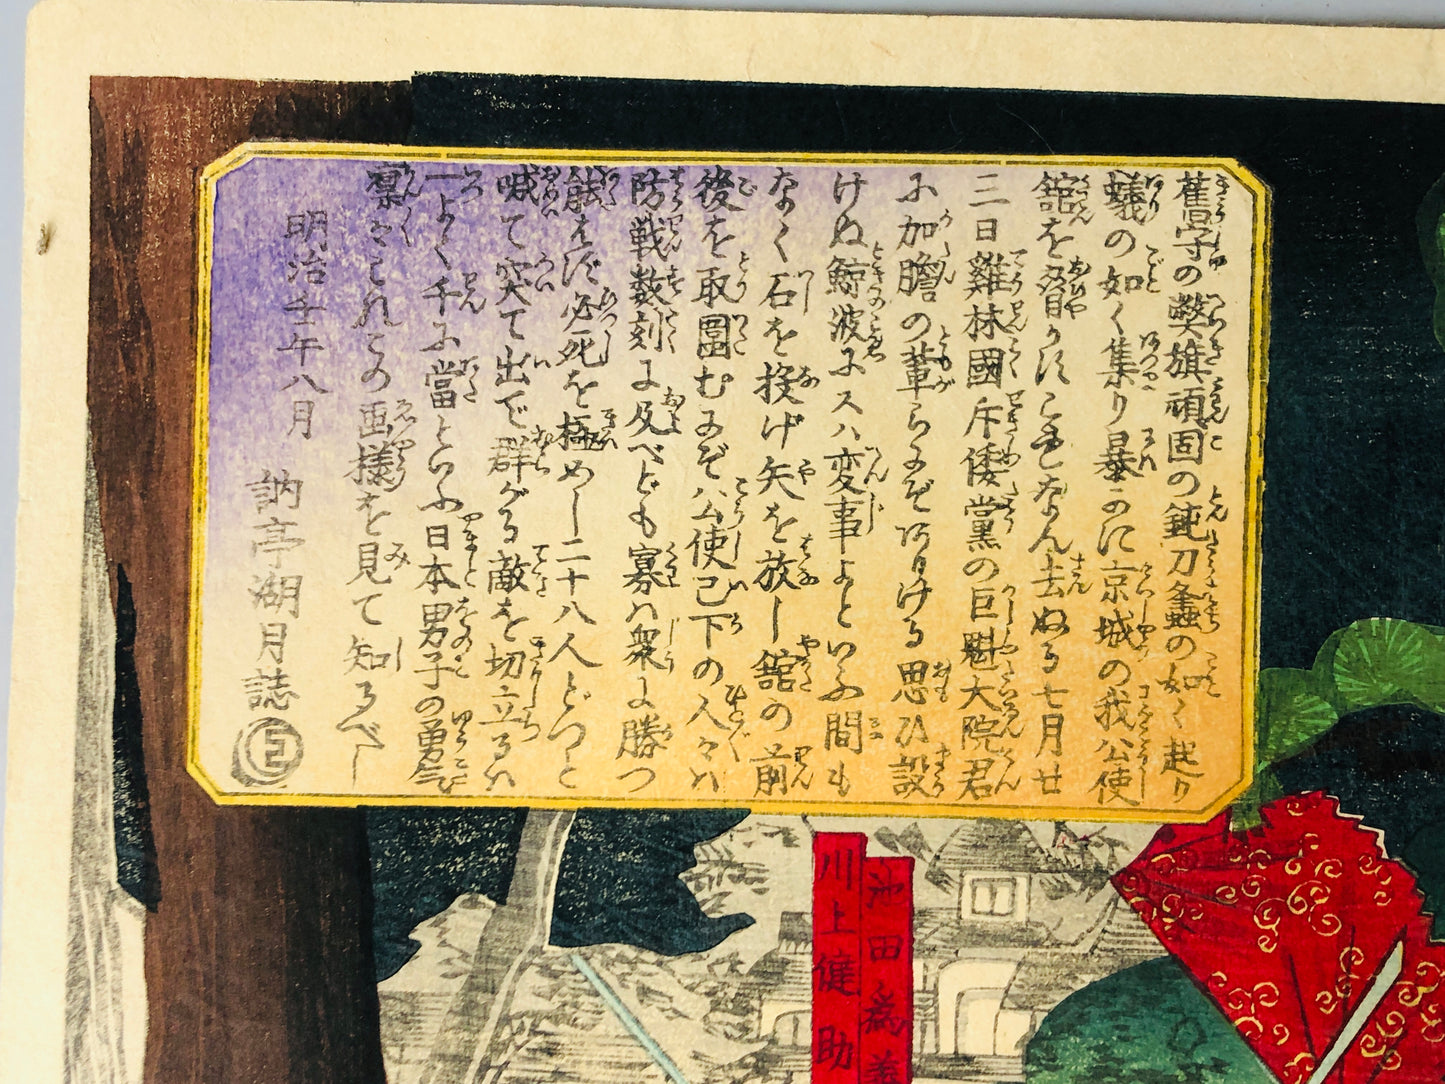 舊守の弊旗頑固の鈍刀蠡の如く起り
蟻の如く集り暴かに京城の我公使
舘を脅かすこをなん去ぬる七月廿
三日雞林國斥倭黨の巨魁大院君
に加膽の輩らにぞ ける思ひ設
けぬ鯨波にスハ変事よといふ間も
なく石を投げ矢を放し舘の前
後を取圍むにぞ公使已下の人々ハ
防戦数刻に及べども寡ハ衆に勝つ
能はず必死を極めし二十八人どつと
喊て突て出で群がる敵を切立るハ
一よく千に當といふ日本男子の勇気
凜々これらの画様を見て知るべし
明治壬午八月
訥亭湖月誌
池田為善
川上健助